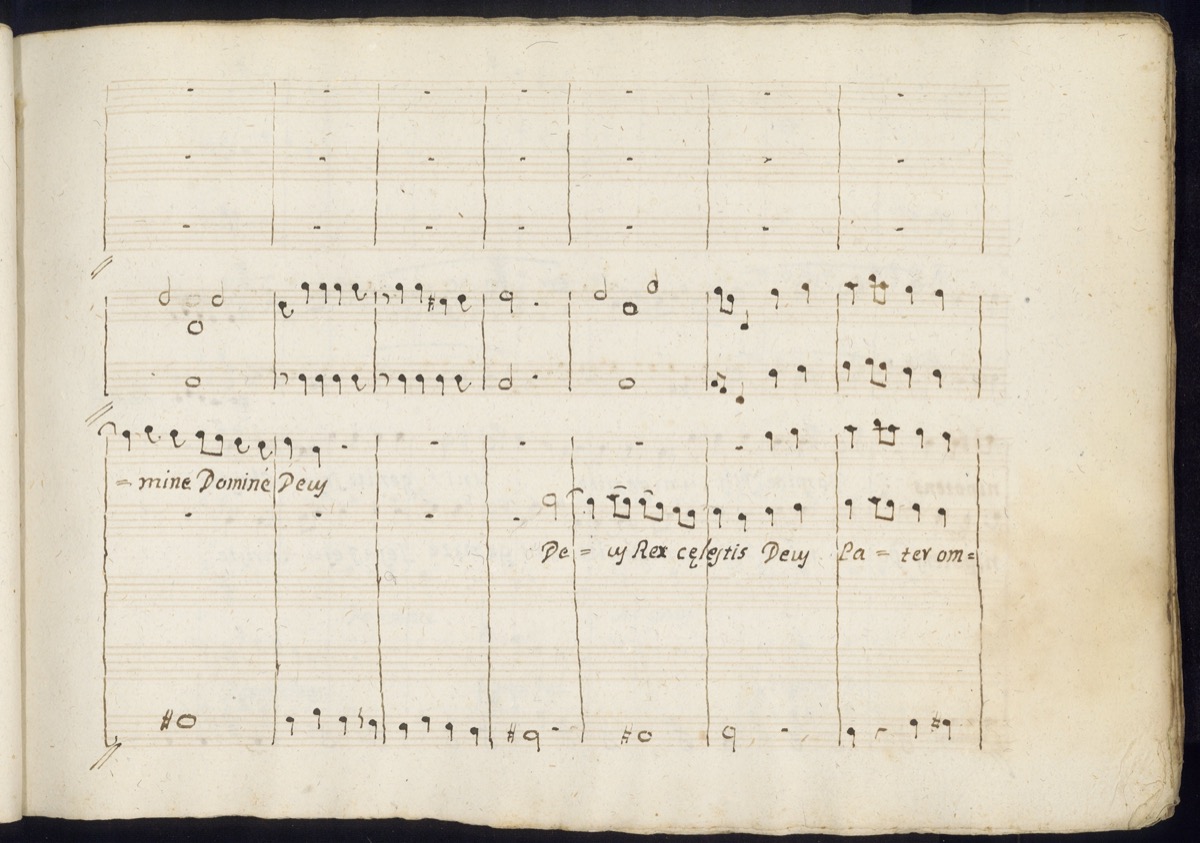 = mine Domine Deus
De = us Rex cęlestis Deus Pa = ter om=